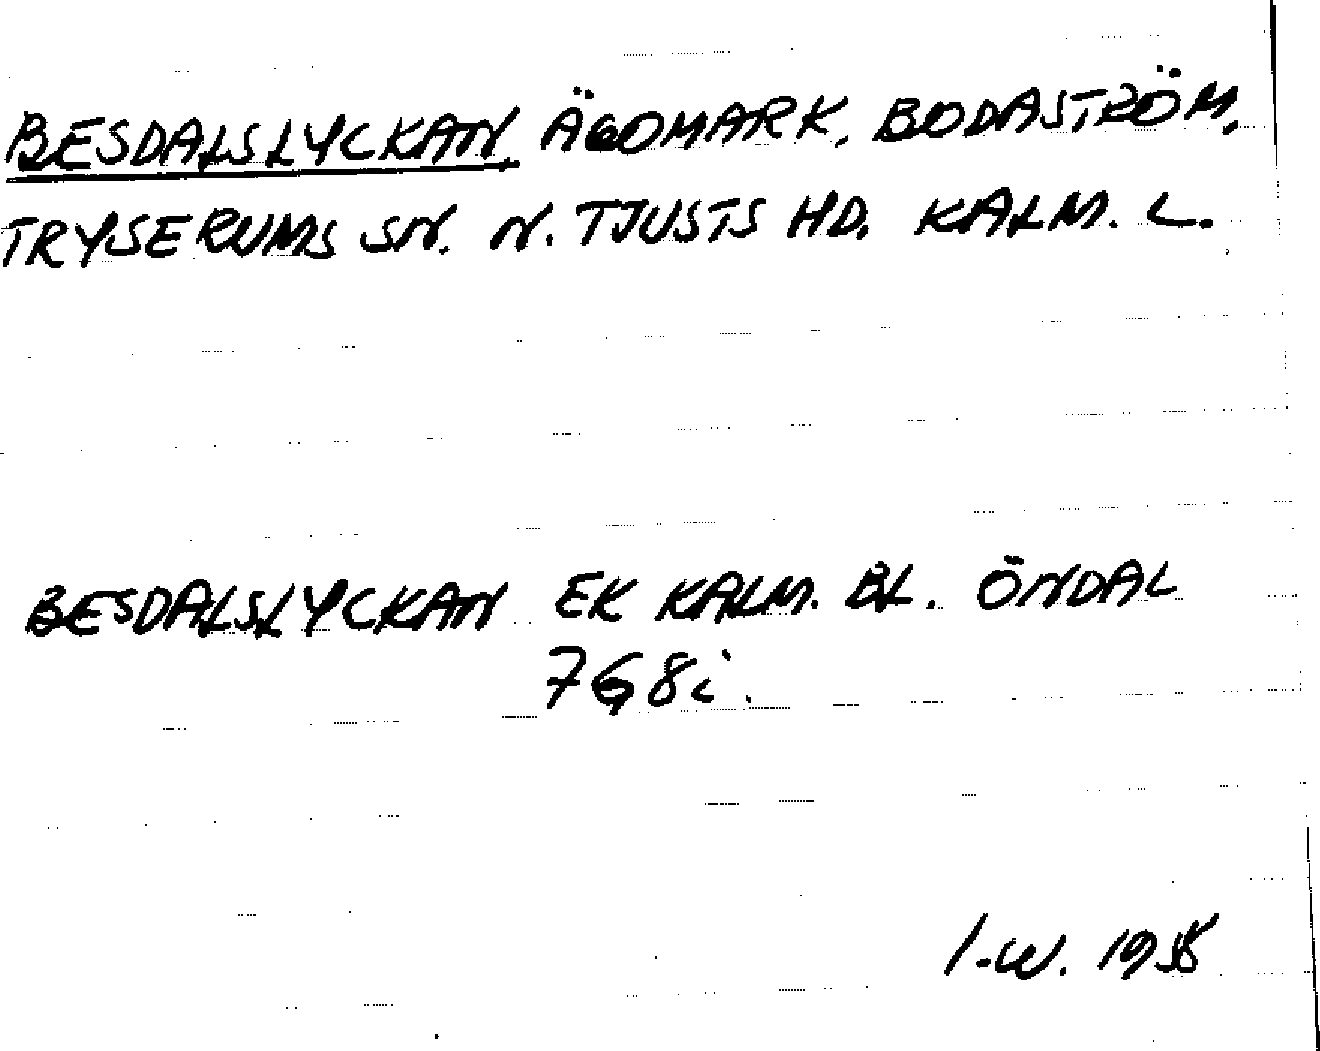 BESDALSLYCKAN, ÄGOMARK, BODASTRÖM,
TRYSERUMS SN. N. TJUSTS HD. KALM. L.
BESDALSLYCKAN EK KALM. BL. ÖNDAL
7G8i.
I-W. 1958